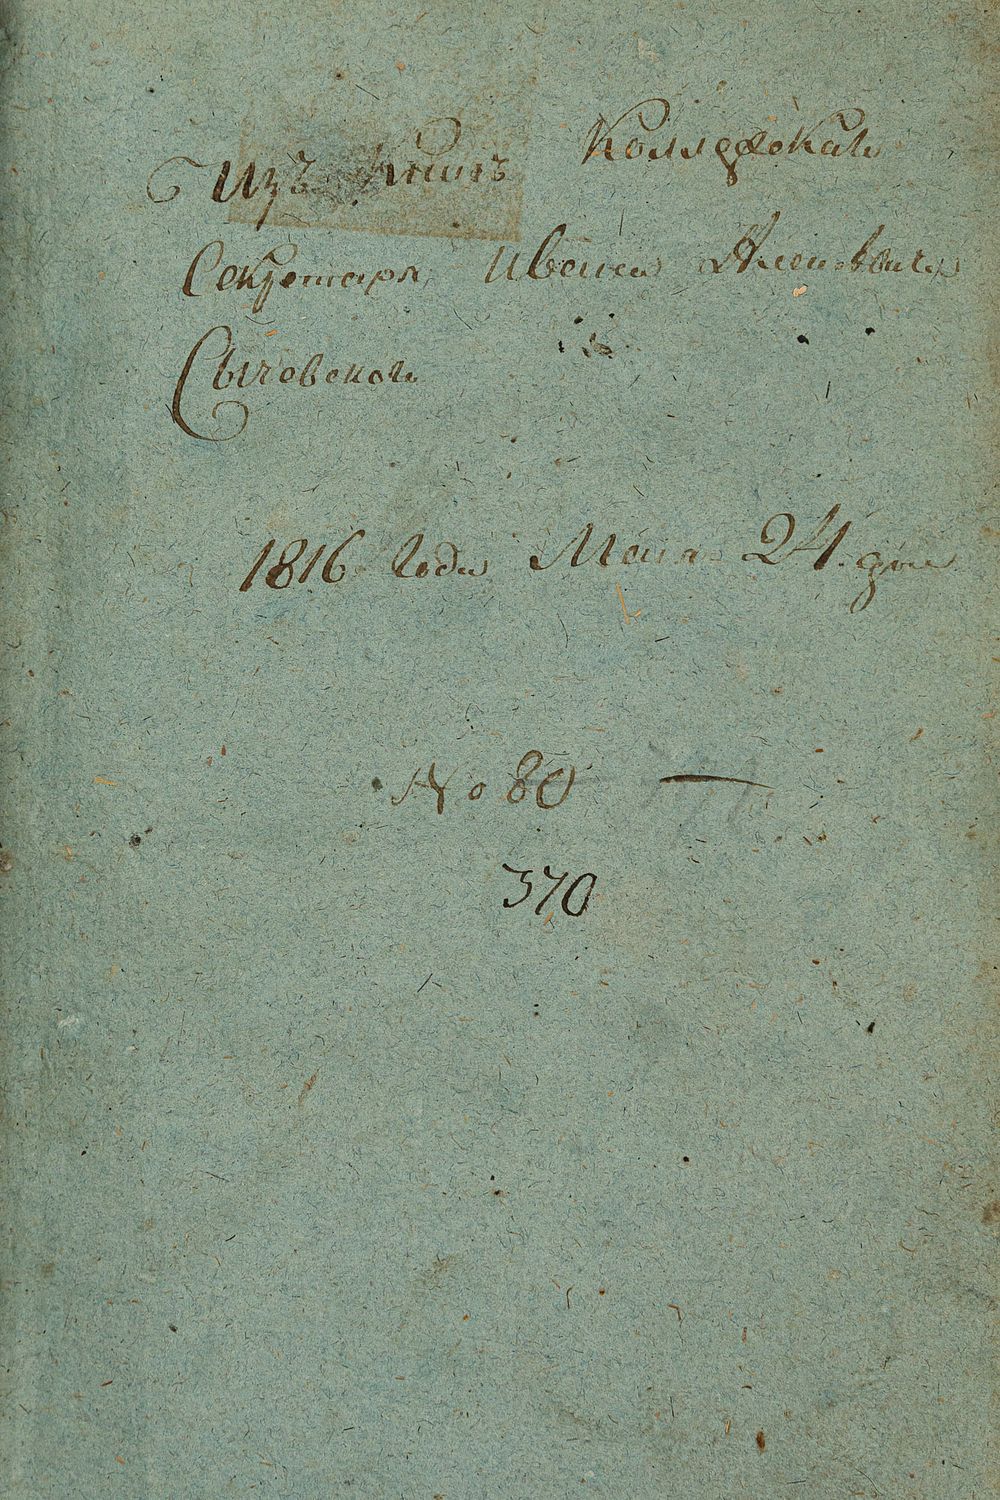 Изъ книгъ Коллежскаго
Секретаря Ивана
Сычевскаго
1816 Года Маия 24. дня
No 80
370